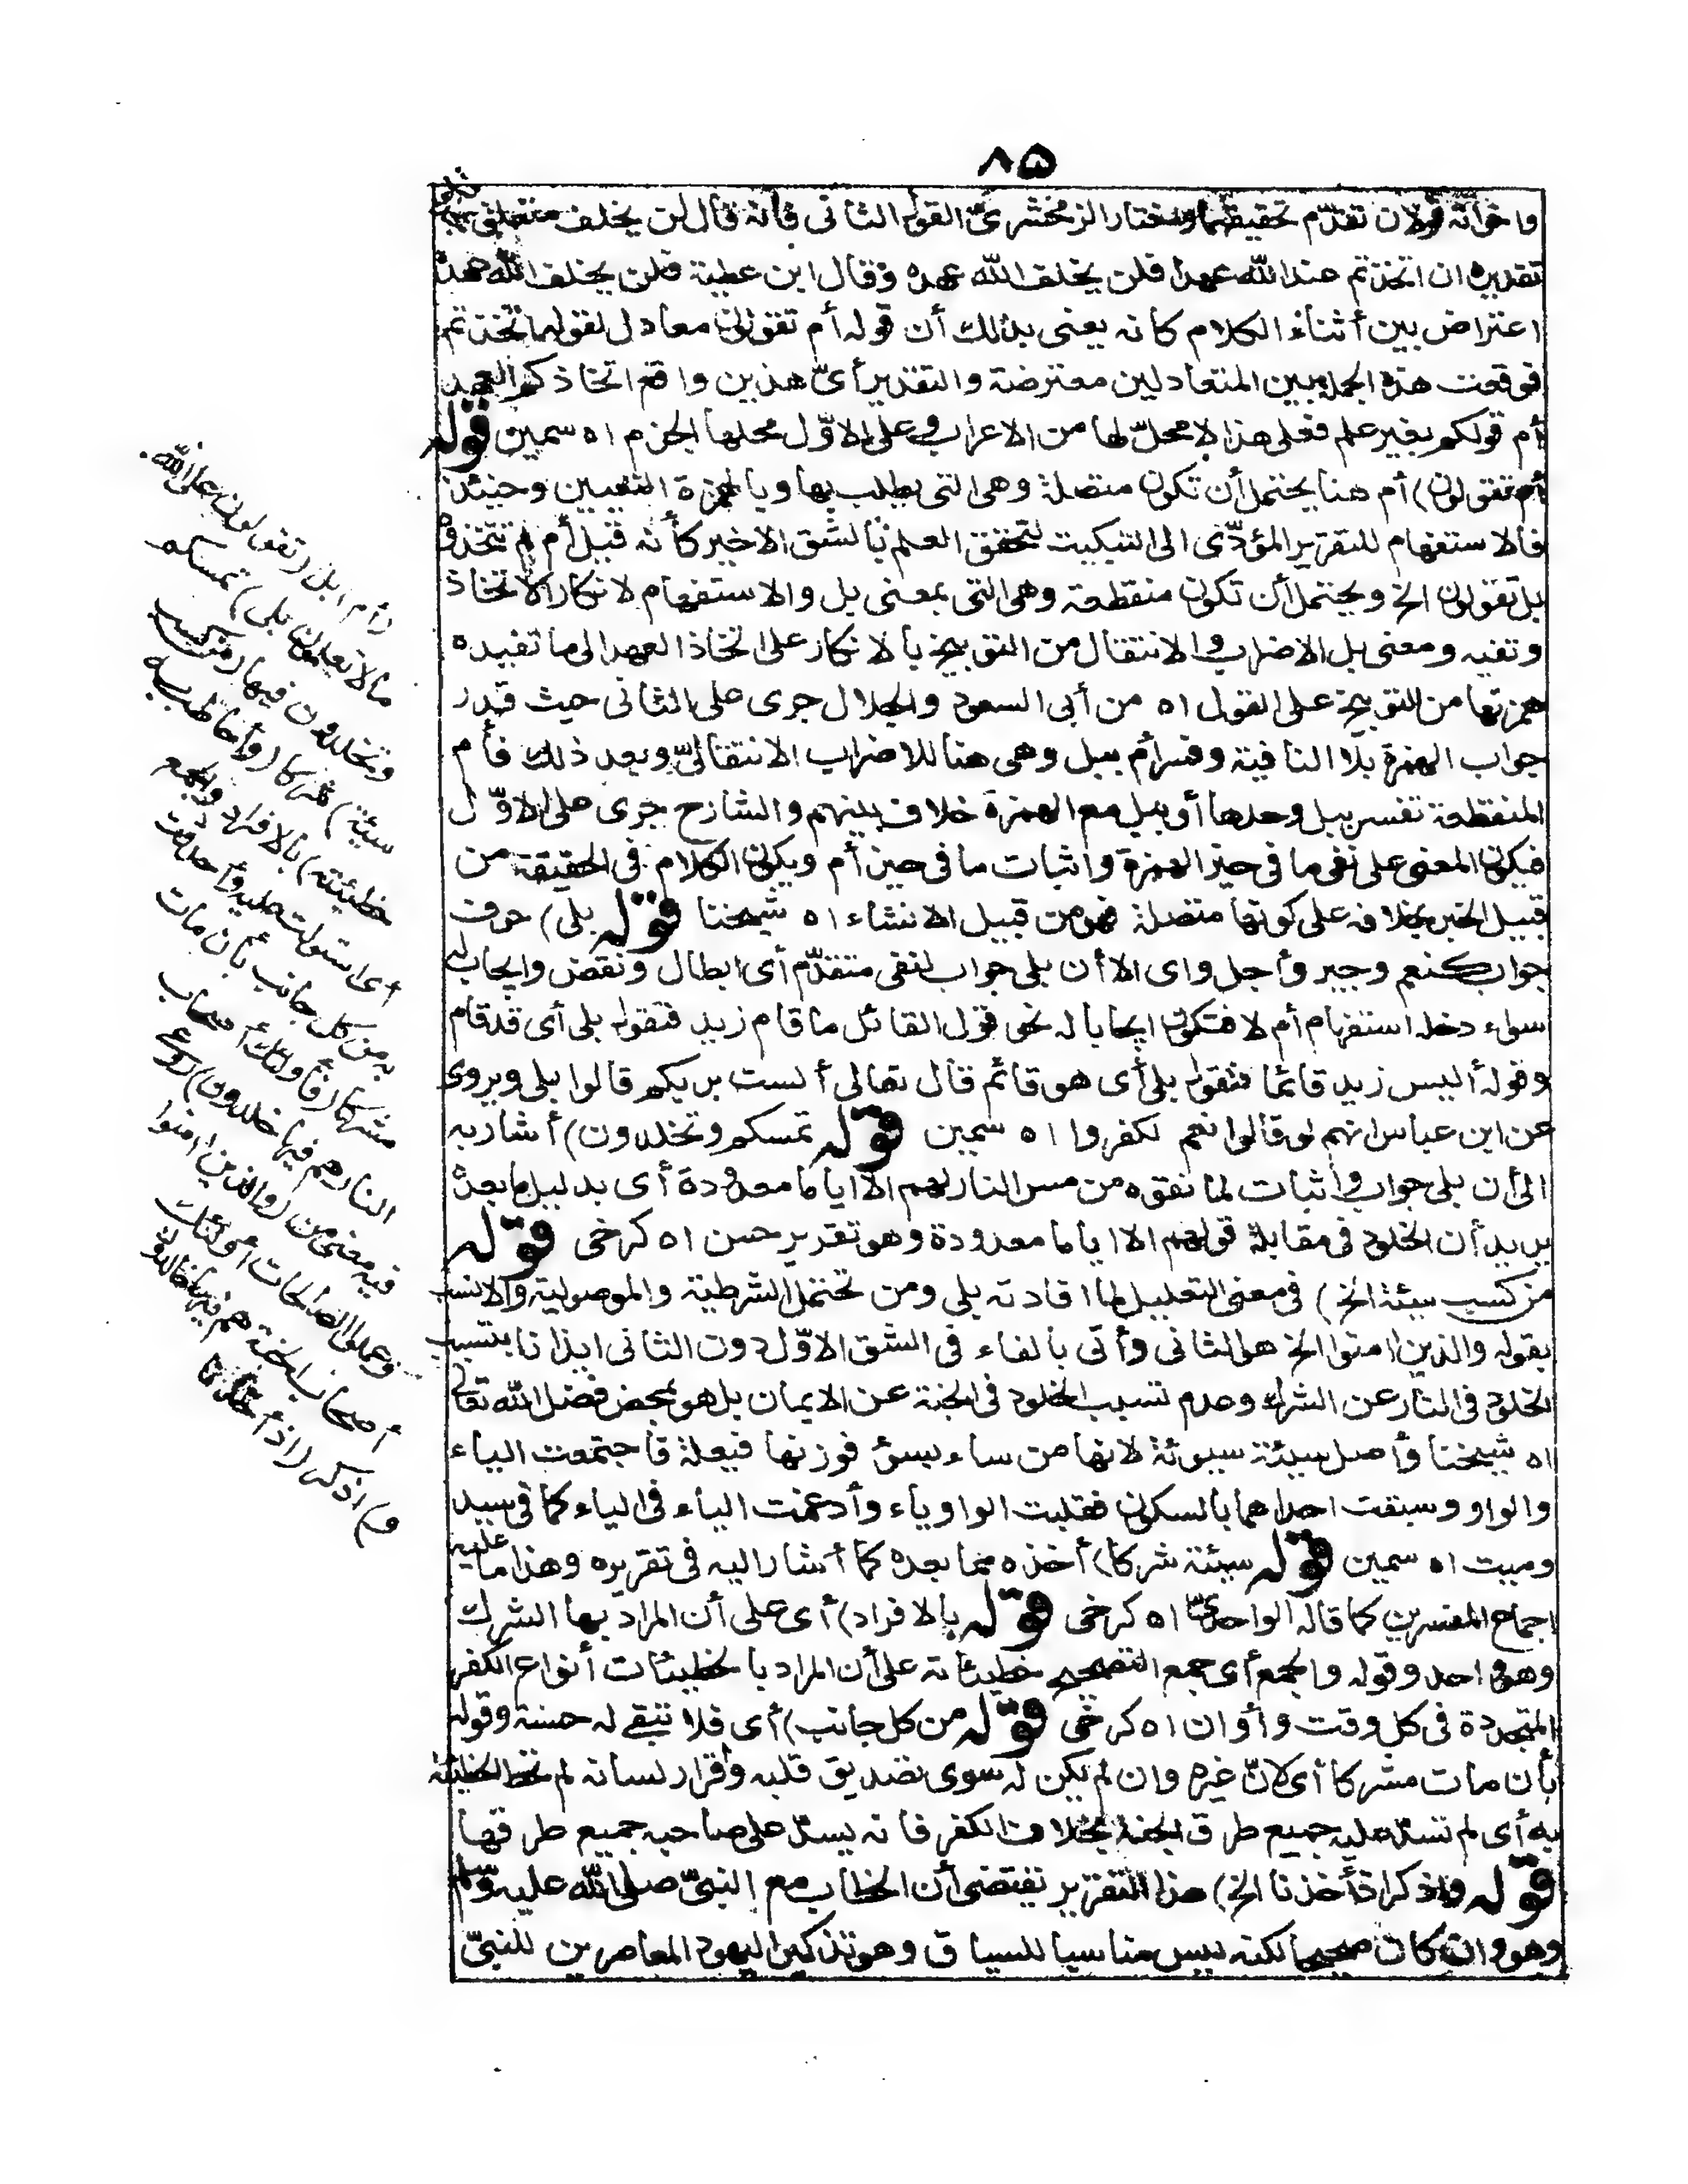 ٨٥
واخواته قولان تقدّم تحقيقهما واختار الزمخشرىّ القول الثانى فانه قال لن يخلف متعلق بمحذوف
تقديره ان اتخذتم عند الله عهدا فلن يخلف الله عهده وقال ابن عطية فلن يخلف الله عهده
اعتراض بين أثناء الكلام كانه يعنى بذلك أن قوله أم تقولون معادل لقوله اتخذتم
فوقعت هذه الجملة بين المتعادلين معترضة والتقدير أىّ هذين واقع اتخاذكم العهد
أم قولكم بغير علم فعلى هذا لا محلّ لها من الاعراب وعلى الاوّل محلها الجزم اه سمين قوله
أم تقولون) أم هنا يحتمل أن تكون متصلة وهى التى يطلب بها وبالهمزة التعيين وحينئذ
فالاستفهام للتقرير المؤدّى الى التبكيت لتحقق العلم بالشق الاخير كأنه قيل أم لم تتخذوه
بل تقولون الخ ويحتمل أن تكون منقطعة وهى التى بمعنى بل والاستفهام لانكار الاتخاذ
ونفيه ومعنى بل الاضراب والانتقال من التوبيخ بالانكار على اتخاذ العهد الى ما تفيده
همزتها من التوبيخ على القول اه من أبى السعود والجلال جرى على الثانى حيث قدر
جواب الهمزة بلا النافية وفسر أم ببل وهى هنا للاضراب الانتقالىّ وبعد ذلك فأم
المنقطعة تفسر ببل وحدها أو ببل مع الهمزة خلاف بينهم والشارح جرى على الاوّل
فيكون المعنى على نفى ما فى حيز الهمزة واثبات ما فى حيز أم ويكون الكلام فى الحقيقة من
قبيل الخبر بخلافه على كونها متصلة فهو من قبيل الانشاء اه شيخنا قوله بلى) حرف
جواب كنعم وجير وأجل واى الا أن بلى جواب لنفى متقدّم أى ابطال ونقض وايجاب له
سواء دخله استفهام أم لا فتكون ايجابا له نحو قول القائل ما قام زيد فتقول بلى أى قد قام
وقوله أليس زيد قائما فتقول بلى أى هو قائم قال تعالى ألست بربكم قالوا بلى ويروى
عن ابن عباس انهم لو قالوا نعم لكفروا اه سمين قوله تمسكم وتخلدون) أشار به
الى أن بلى جواب واثبات لما نفوه من مس النار لهم الا اياما معدودة أى بدليل ما بعده
يريد أن الخلود فى مقابلة قولهم الا اياما معدودة وهو تقرير حسن اه كرخى قوله
من كسب سيئة الخ) فى معنى التعليل لما افادته بلى ومن تحتمل الشرطية والموصولية والانسب
بقوله والذين امنوا الخ هو الثانى وأتى بالفاء فى الشق الاوّل دون الثانى ايذانا بتسبب
الخلود فى النار عن الشرك وعدم تسبب الخلود فى الجنة عن الايمان بل هو بمحض فضل الله تعالى
اه شيخنا وأصل سيئة سيوئة لانها من ساء يسوء فوزنها فيعلة فاجتمعت الياء
والواو وسبقت احداهما بالسكون فقلبت الواو ياء وأدغمت الياء فى الياء كما فى سيد
وميت اه سمين قوله سيئة شركا) أخذه مما بعده كما أشار اليه فى تقريره وهذا ما عليه
اجماع المفسرين كما قاله الواحدىّ اه كرخى قوله بالافراد) أى على أن المراد بها الشرك
وهو واحد وقوله والجمع أى جمع التصحيح خطيئاته على أن المراد بالخطيئات أنواع الكفر
المتجددة فى كل وقت وأوان اه كرخى قوله من كل جانب) أى فلا تبقى له حسنة وقوله
بأن مات مشركا أى لانّ غيره وان لم يكن له سوى تصديق قلبه واقرار لسانه لم تحط الخطيئة
به أى لم تسدّ عليه جميع طرق الجنة بخلاف الكفر فانه يسدّ على صاحبه جميع طرقها
قوله واذكر اذ أخذنا الخ) هذا التقرير يقتضى أن الخطاب مع النبىّ صلى الله عليه وسلم
وهو وان كان صحيحا لكنه ليس مناسبا للسياق وهو تذكير اليهود المعاصرين للنبىّ
(أم) بل (تقولون على الله
ما لا تعلمون بلى) تمسكم
وتخلدون فيها (من كسب
سيئة) شركا (وأحاطت به
خطيئته) بالافراد والجمع
أى استولت عليه وأحدقت
به من كل جانب بأن مات
مشركا (فأولئك أصحاب
النار هم فيها خلدون) روعى
فيه معنى من (والذين امنوا
وعملوا الصالحات أولئك
أصحاب الجنة هم فيها خالدون
و) اذكر (اذ أخذنا